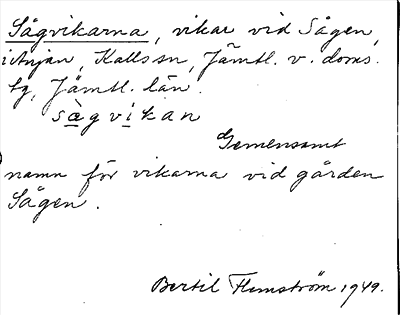 Sågvikarna, vikar vid Sågen,
i Anjan, Kalls sn, Jämtl. v. doms.
tg, Jämtl. län.
sàgvikan
Gemensamt
namn för vikarna vid gården
Sågen.
Bertil Flemström 1949.